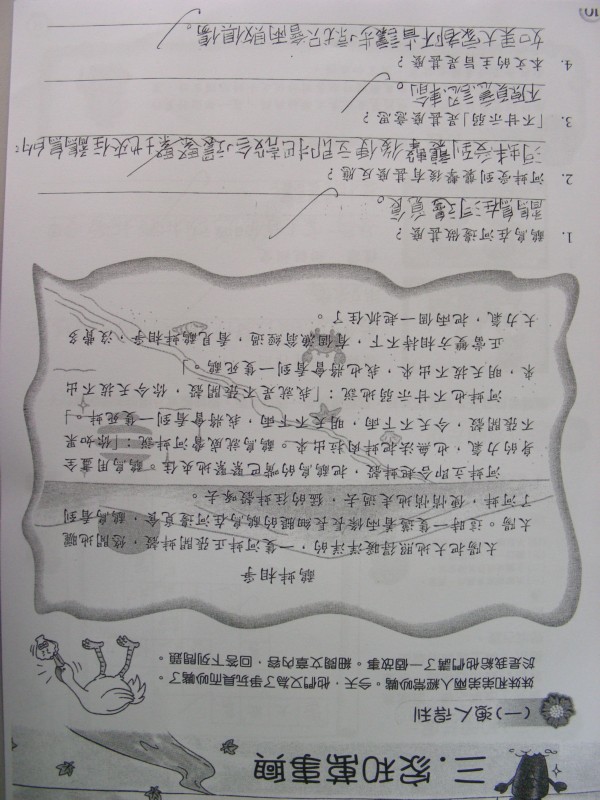 三．家和萬事興
(一) 漁人得利
妹妹和弟弟兩人經常吵嘴。今天，他們又為了爭玩具而吵嘴了。
於是我給他們講了一個故事。細閱文章內容，回答下列問題。
鷸蚌相爭
太陽把大地照得暖洋洋的，一隻河蚌正張開蚌殼，悠閒地曬
太陽。這時一隻邁着兩條長長細腿的鷸鳥在河邊覓食，鷸鳥看到
了蚌，便悄悄地走過去，猛的往蚌殼啄去。
河蚌立即合起蚌殼，把鷸鳥的嘴巴緊緊地夾住。鷸鳥用盡全
身的力氣，也無法把蚌肉拉出來。鷸鳥就威脅河蚌說：「你如果
不張開殼，今天不下雨，明天不下雨，我將會看到一隻死蚌。」
河蚌也不甘示弱地說：「我就是不張開殼，你今天拔不出
來，明天拔不出來，我也將會看到一隻死鷸。」
正當雙方相持不下，有個漁翁經過，看見鷸蚌相爭，沒費多
大力氣，把兩個一起抓住了。
1. 鷸鳥在河邊做甚麼？
鷸鳥在河邊覓食。
2. 河蚌受到襲擊後有甚麼反應？
河蚌受到襲擊後便立即把殼合起緊緊地夾住鷸鳥的
3. 「不甘示弱」是甚麼意思？
不願意認輸
4. 本文的主旨是甚麼？
如果大家都不肯讓步，就只會兩敗俱傷。